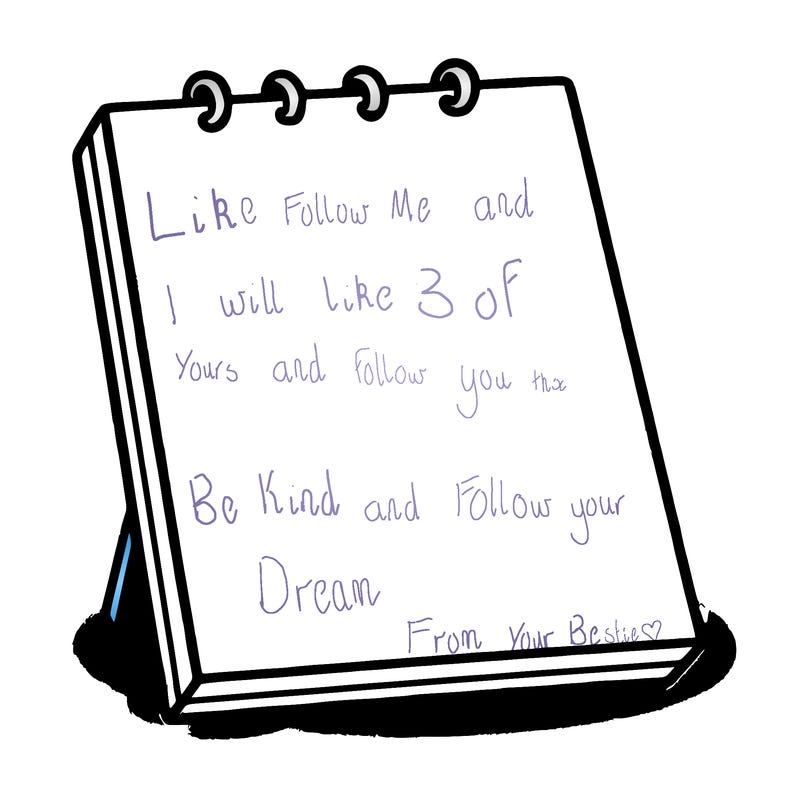 Like Follow Me and
I will like 3 of
Yours and Follow you thx
Be Kind and Follow your
Dream
From Your Bestie♡